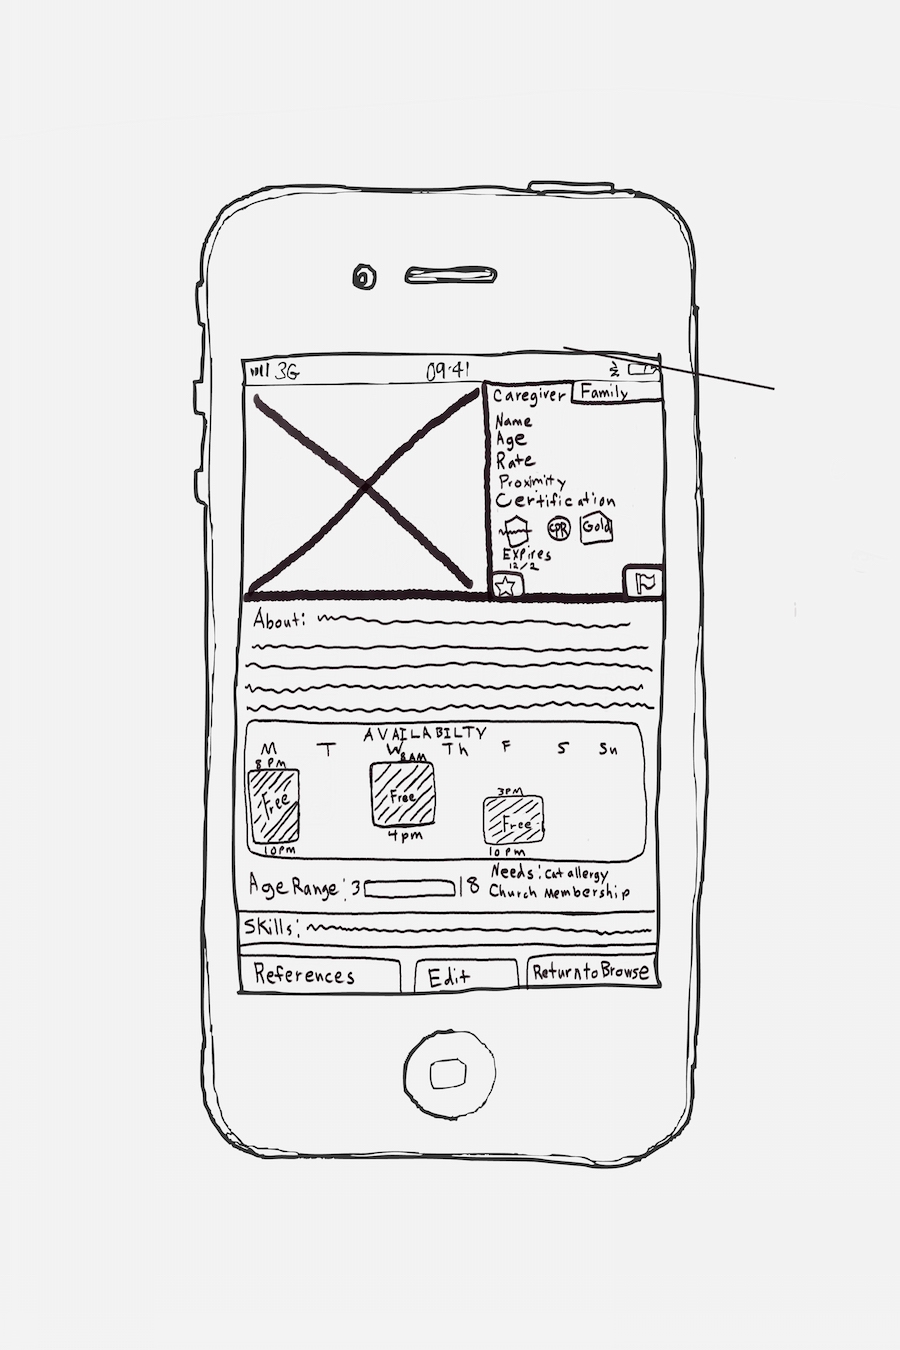 3G 09:41
Caregiver Family
Name
Age
Rate
Proximity
Certification
CPR Gold
Expires
12/2
About:
AVAILABILTY
M T W Th F S Su
8 PM 8AM
Free Free
3PM
Free
4pm
10pm 10pm
Age Range: 3 18
Needs: Cat allergy
Church Membership
Skills:
References Edit Return to Browse